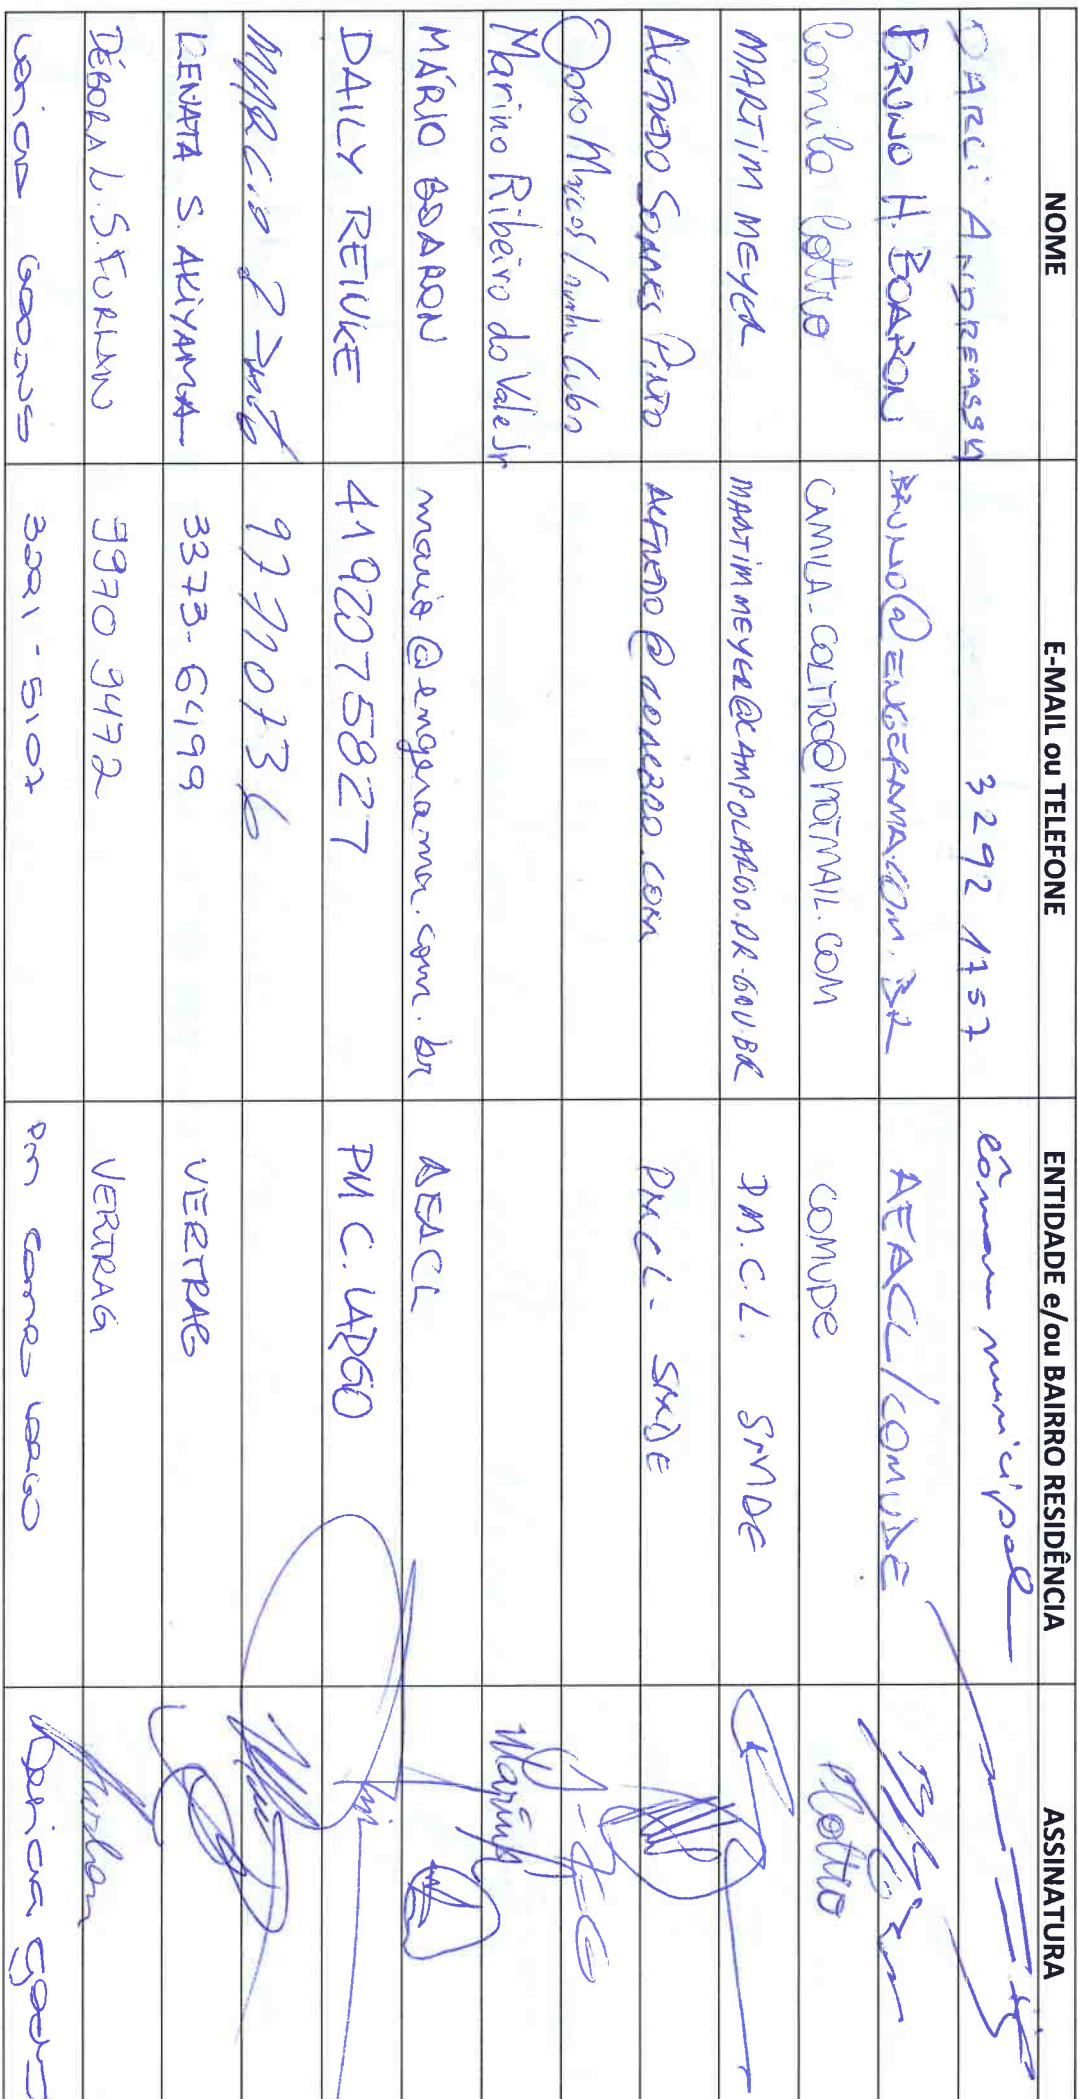 NOME E-MAIL ou TELEFONE ENTIDADE e/ou BAIRRO RESIDÊNCIA ASSINATURA
DARCI ANDREASSA 3292 1757 Câmara municipal
BRUNO H. BOARON BRUNO@ENGERAMA.COM.BR AEACL/COMUDE
Camila Coltro CAMILA-COLTRO@HOTMAIL.COM COMUDE CColtro
MARTIM MEYER MARTIMMEYER@CAMPOLARGO.PR.GOV.BR P.M.C.L. SMDE
ALFREDO SOARES PINTO PMCL - SMDE
João Marcos
Marino Ribeiro do Vale Jr Marino
MÁRIO BOARON mario@engerama.com.br AEACL
DAILY REINKE 41 92075827 PM C. LARGO
MARCIO 97710736
RENATA S. AKIYAMA 3373-6499 VERTRAG
DÉBORA L. S. FURLAN 9970 9472 VERTRAG Furlan
3291-5107 PM CAMPO LARGO